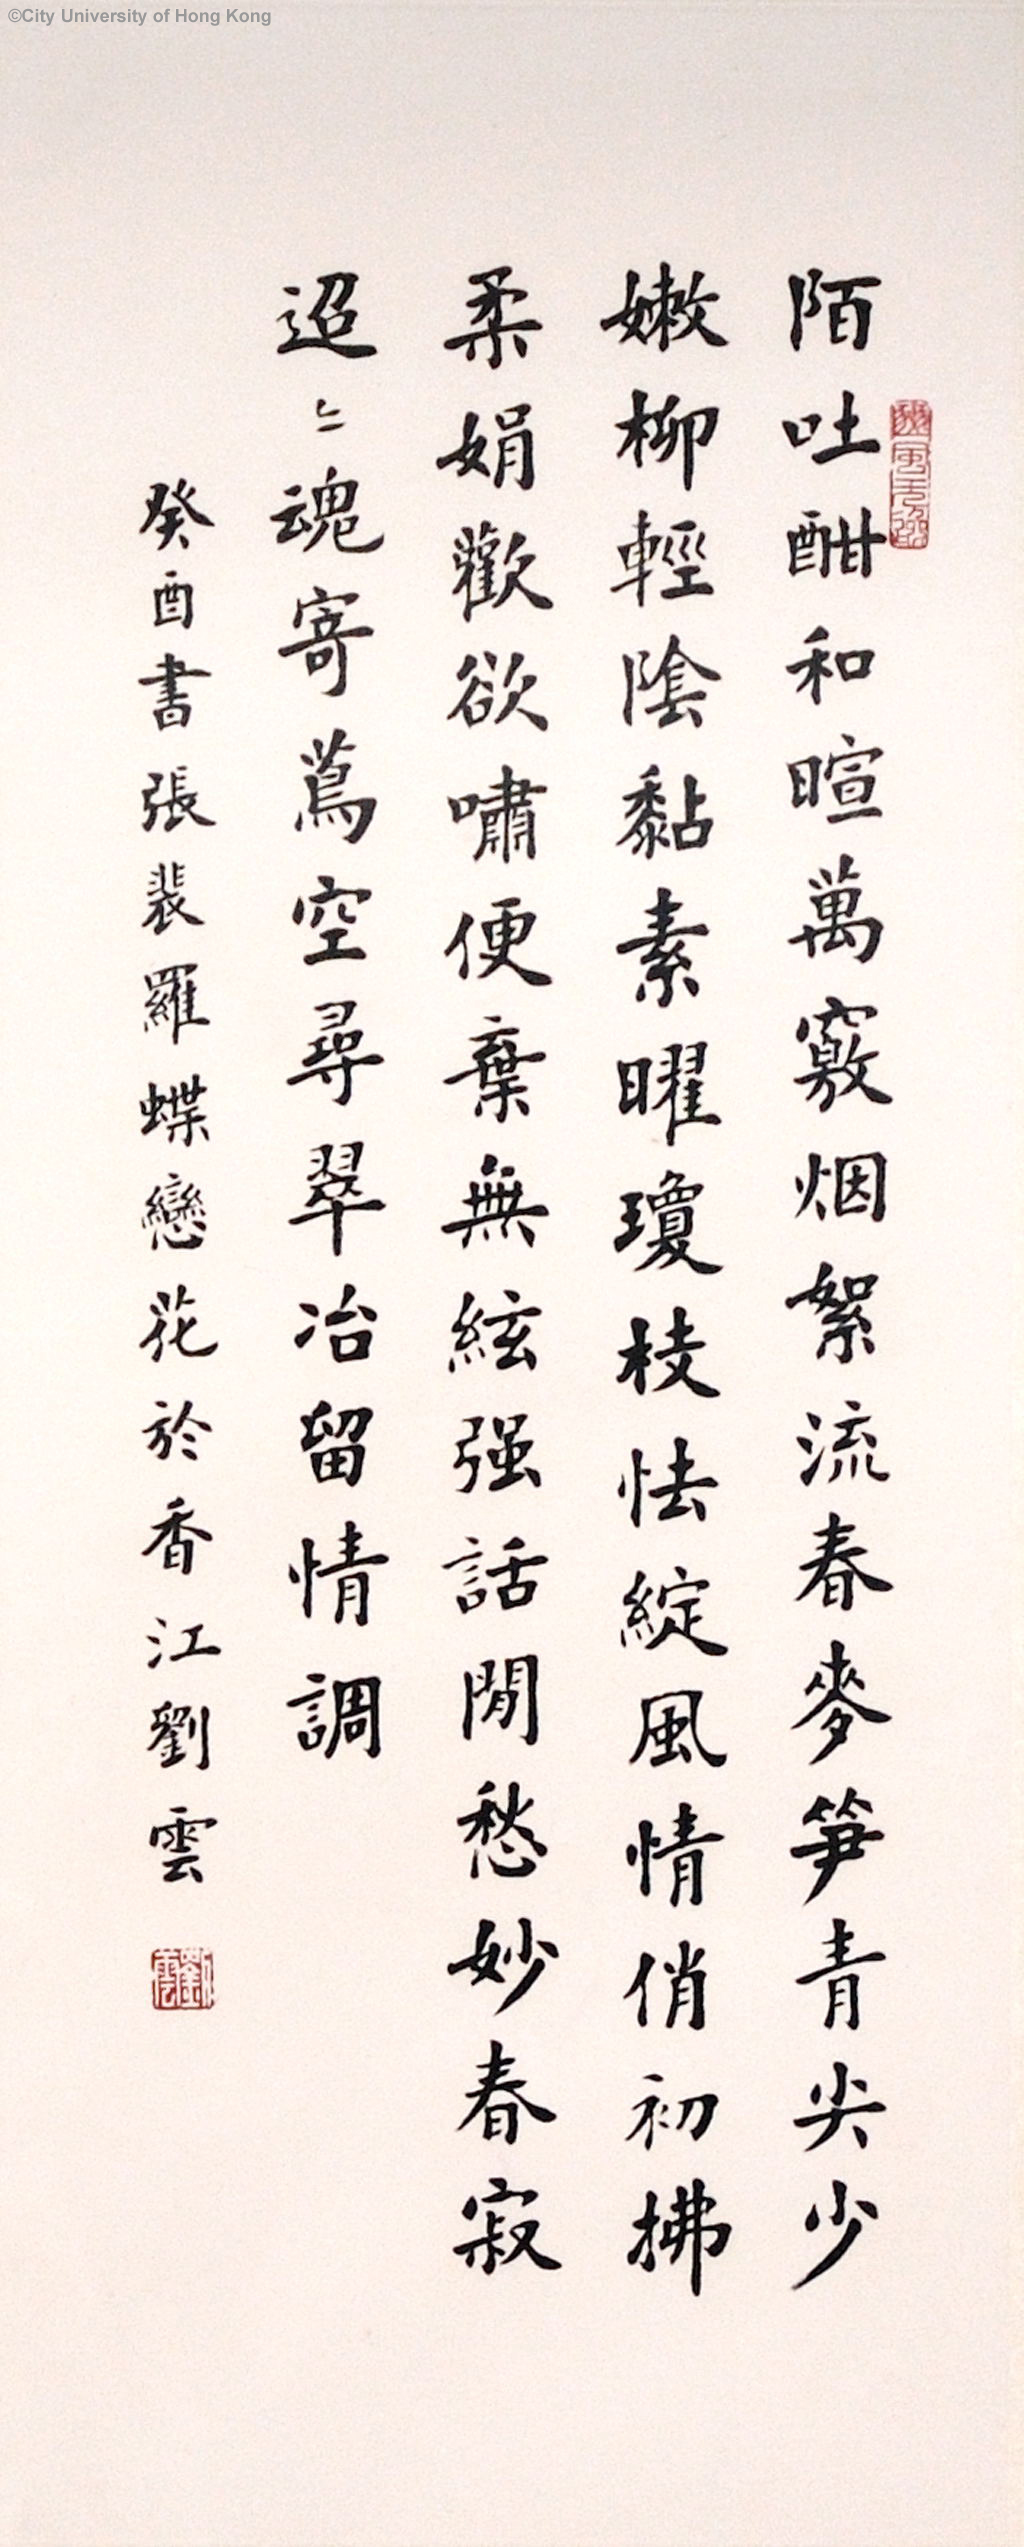 ©City University of Hong Kong
陌吐酣和暄萬竅烟絮流春麥笋青尖少
嫩柳輕陰黏素曜瓊枝怯綻風情俏初拂
柔娟歡欲嘯便棄無絃强話閒愁妙春寂
迢〻魂寄蔦空尋翠冶留情調
癸酉書張裴羅蝶戀花於香江劉雲
劉雲